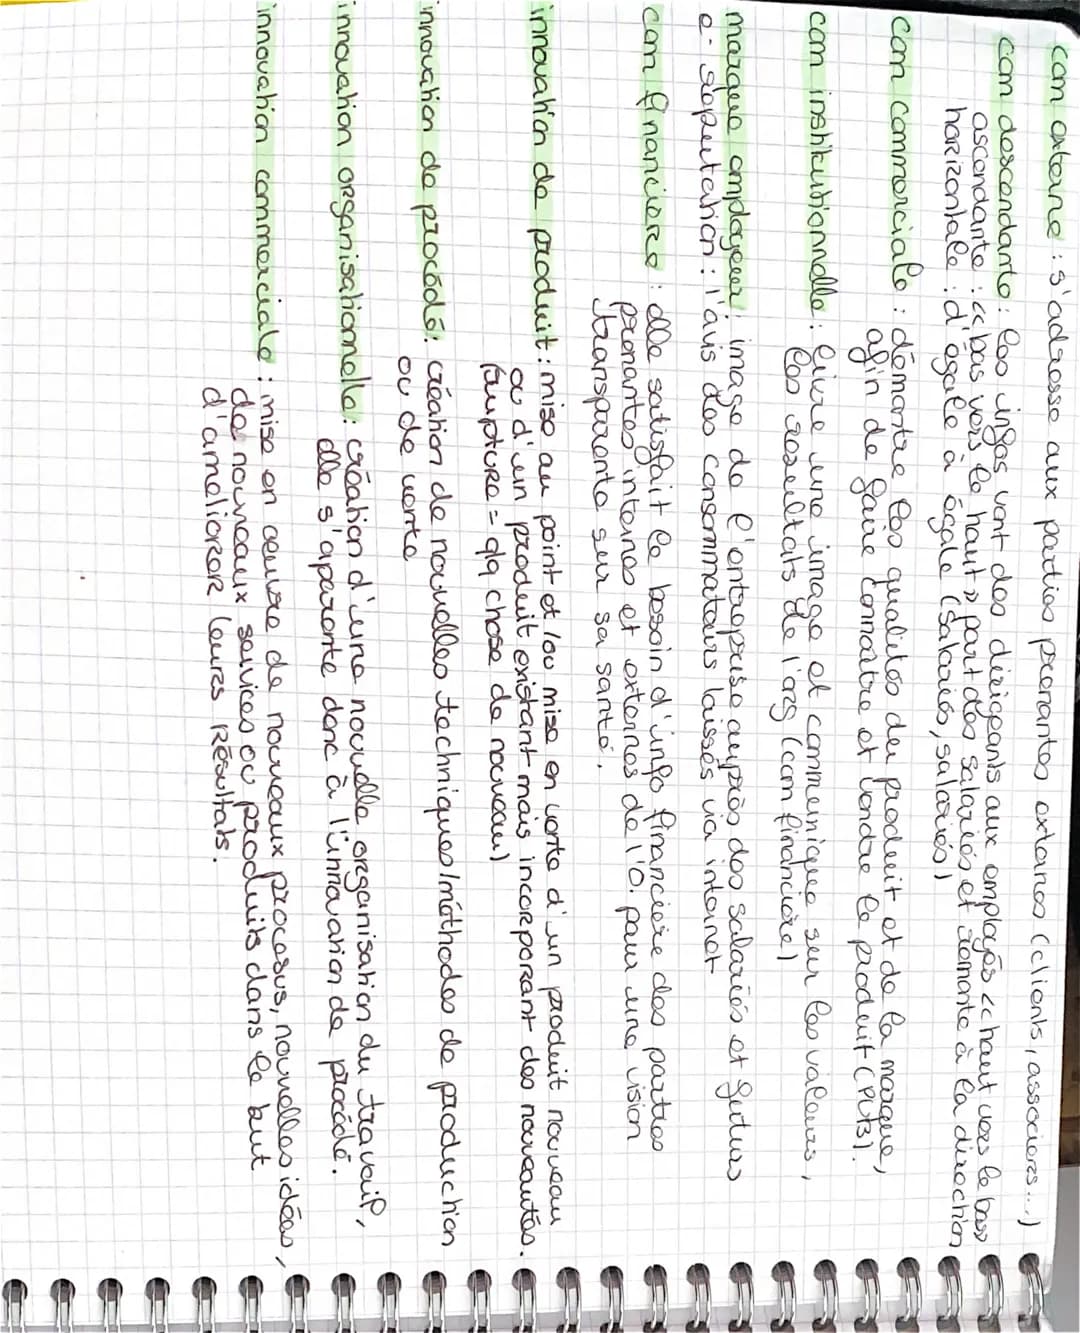 com externe : s'adresse aux parties prenantes externes (clients, associeres...)
com descendante : les infos vont des dirigeants aux employés << haut vers le bas
ascendante : << bas vers le haut >> part des salariés et remonte à la direction
horizontale : d'égale à égale (salariés, salariés)
com commerciale : démontre les qualités du produit et de la marque,
afin de faire connaître et vendre le produit (PUB).
com institutionnelle : livre une image et communique sur les valeurs,
les resultats de l'org (com financière)
marque employeur : image de l'entreprise auprès des salariés et futurs
e-reputation : l'avis des consommateurs laissés via internet
com financière : elle satisfait le besoin d'info financière des parties
prenantes internes et externes de l'O. pour une vision
transparente sur sa santé.
innovation de produit : mise au point et/ou mise en vente d'un produit nouveau
ou d'un produit existant mais incorporant des nouveautés.
(rupture = qlq chose de nouveau)
innovation de procédé : création de nouvelles techniques/méthodes de production
ou de vente
innovation organisationnelle : création d'une nouvelle organisation du travail,
elle s'aparente donc à l'innovation de procédé.
innovation commerciale : mise en oeuvre de nouveaux procesus, nouvelles idées,
de nouveaux services ou produits dans le but
d'ameliorer leurs résultats.